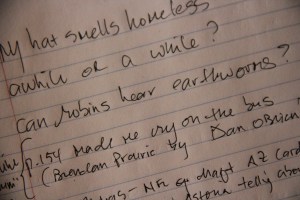 My hat smells homeless
awhile or a while?
can robins hear earthworms?
p.154 made me cry on the bus
(Brendan Prairie by Dan O'Brien
draft AZ